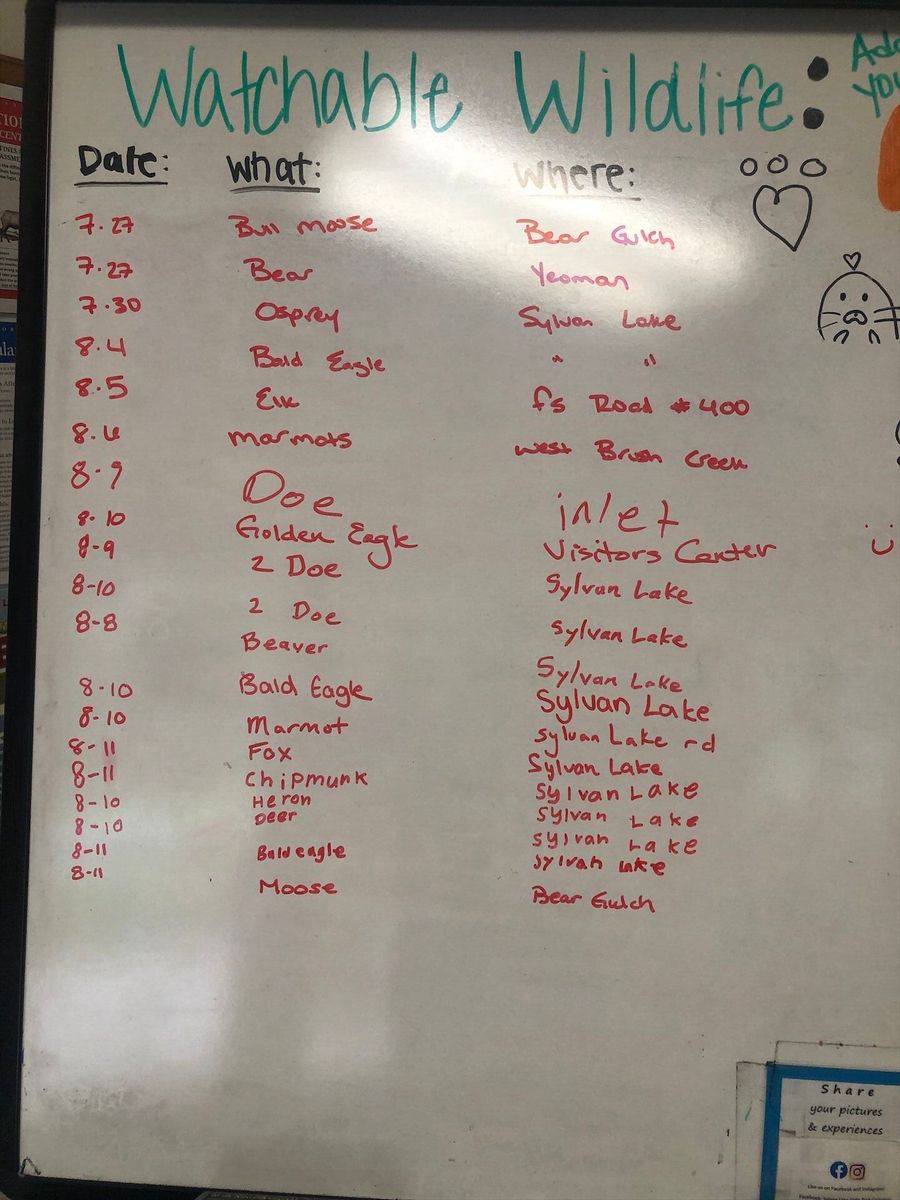 Watchable Wildlife:
Date: What: Where:
7.27 Bull moose Bear Gulch
7.27 Bear Yeoman
7.30 Osprey Sylvan Lake
8.4 Bald Eagle " "
8.5 Elk fs Road #400
8.6 marmots west Brush Creek
8-9 Doe inlet
8-10 Golden Eagle Visitors Center
8-9 2 Doe Sylvan Lake
8-10 2 Doe Sylvan Lake
8-8 Beaver Sylvan Lake
8-10 Bald Eagle Sylvan Lake
8-10 Marmot Sylvan Lake rd
8-11 Fox Sylvan Lake
8-11 Chipmunk Sylvan Lake
8-10 Heron Sylvan Lake
8-10 Deer Sylvan Lake
8-11 Bald eagle Sylvan Lake
8-11 Moose Bear Gulch
Share
your pictures
& experiences
Like us on Facebook and Instagram!